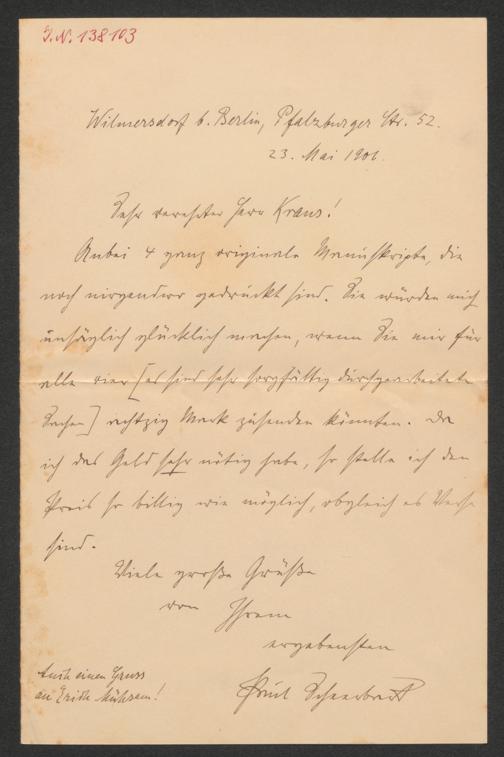 I.N. 138103
Wilmersdorf b. Berlin, Pfalzburger Str. 52.
23. Mai 1906.
Sehr verehrter Herr Kraus!
Anbei 4 ganz originale Manuskripte, die
noch nirgendwo gedruckt sind. Sie würden mich
unsäglich glücklich machen, wenn Sie mir für
alle vier [es sind sehr sorgfältig durchgearbeitete
Sachen] achtzig Mark zusenden könnten. Da
ich das Geld sehr nötig habe, so stelle ich den
Preis so billig wie möglich, obgleich es Verse
sind.
Viele große Grüße
von Ihrem
ergebensten
Paul Scheerbart
Auch einen Gruss
an Erich Mühsam!